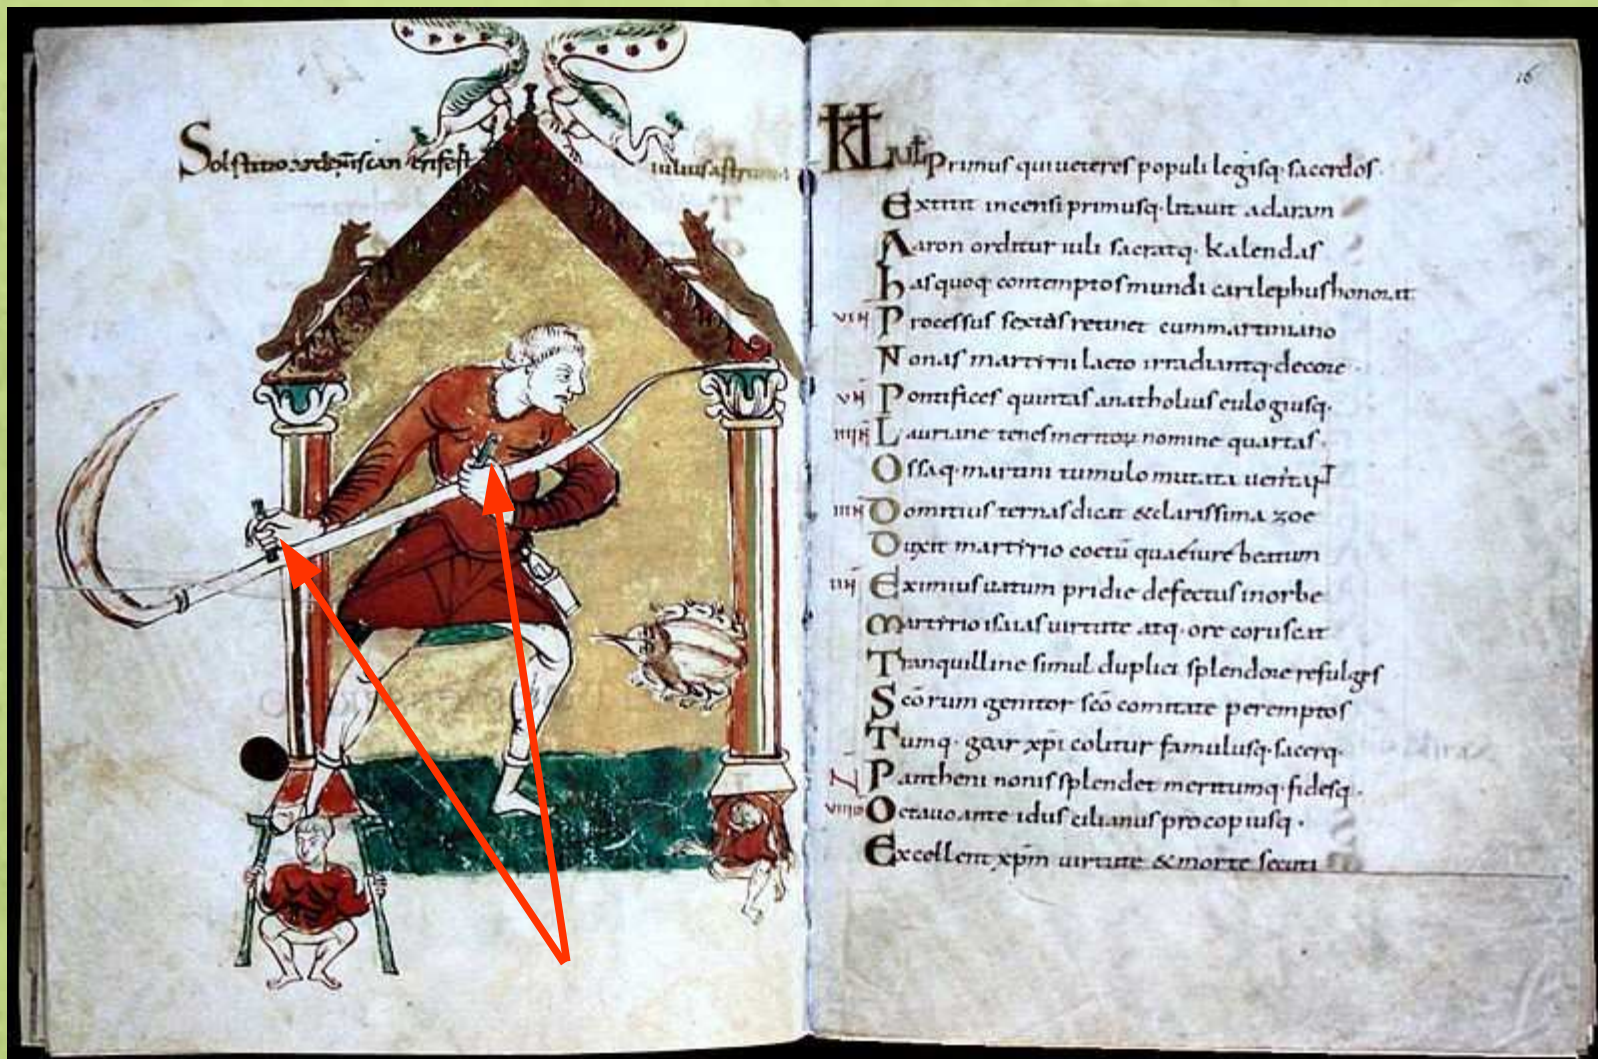 16
Solstitio iulius
KL IUL Primus qui ueteres populi legisq. sacerdos
Extitit incensi primusq. litauit ad aram
Aaron orditur iuli sacratq. kalendas
has quoq. contemptos mundi carilephus honorat
VIN Processus sextas retinet cum martiniano
Nonas martyrii laeto irradiantq. decore
VN Pontifices quintas anatholius eulogiusq.
IIIIN Lauriane tenes nomine quartas
Ossaq. martini tumulo mutata
IIIN Domitius ternas dicat & clarissima zoe
Duxit martyrio coetū beatum
IIN Eximius uatum pridie defectus in orbe
Martyrio isaias uirtute atq. ore coruscat
Tranquilline simul duplici splendore refulges
Scōrum genitor scō comitate peremptos
Tumq. goar xpi colitur famulusq. sacerq.
N Pantheni nonis splendet meritumq. fidesq.
VIIID Octauo ante idus cilianus procopiusq.
Excellent xpm uirtute & morte secuti